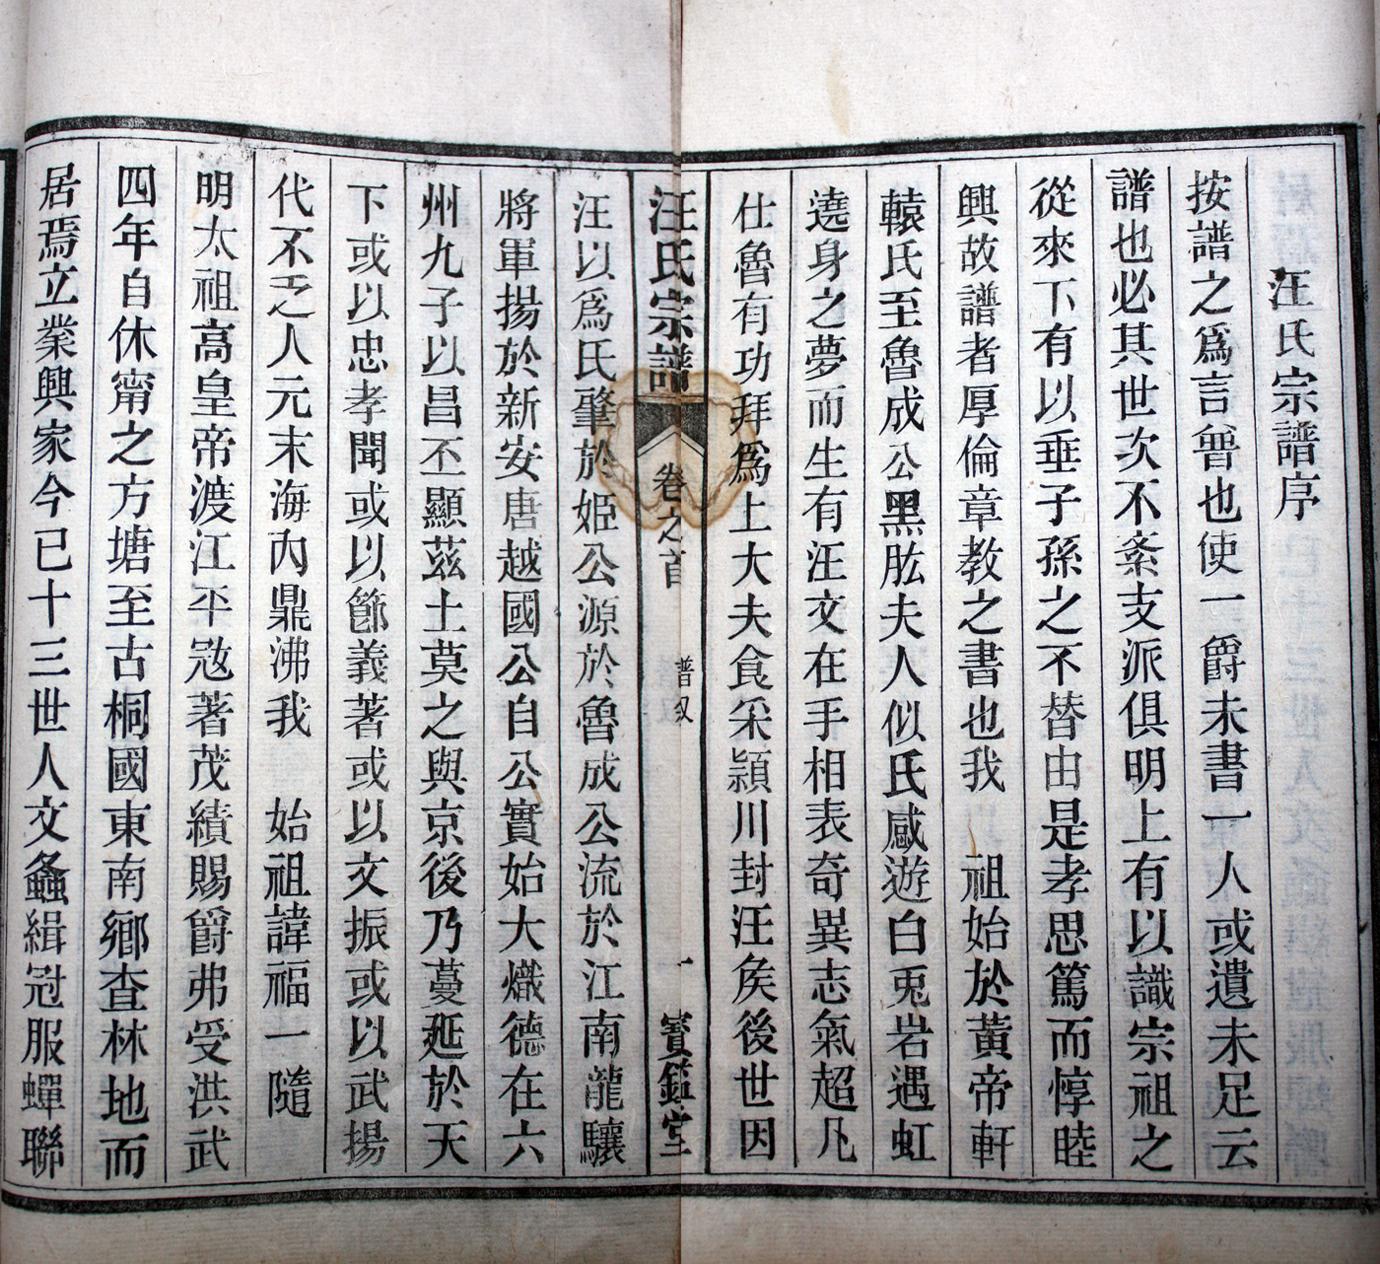 汪氏宗譜序
按譜之爲言曾也使一爵未書一人或遺未足云
譜也必其世次不紊支派俱明上有以識宗祖之
從來下有以垂子孫之不替由是孝思篤而惇睦
興故譜者厚倫章教之書也我 祖始於黃帝軒
轅氏至魯成公黑肱夫人似氏感遊白兎岩遇虹
遶身之夢而生有汪文在手相表奇異志氣超凡
仕魯有功拜爲上大夫食采潁川封汪矦後世因
汪氏宗譜 卷之首 譜叙 一 寶鑑堂
汪以爲氏肇於姬公源於魯成公流於江南龍驤
將軍揚於新安唐越國公自公實始大熾德在六
州九子以昌丕顯茲土莫之與京後乃蔓延於天
下或以忠孝聞或以節義著或以文振或以武揚
代不乏人元末海內鼎沸我 始祖諱福一隨
明太祖高皇帝渡江平寇著茂績賜爵弗受洪武
四年自休甯之方塘至古桐國東南鄉查林地而
居焉立業興家今已十三世人文螽緝冠服蟬聯